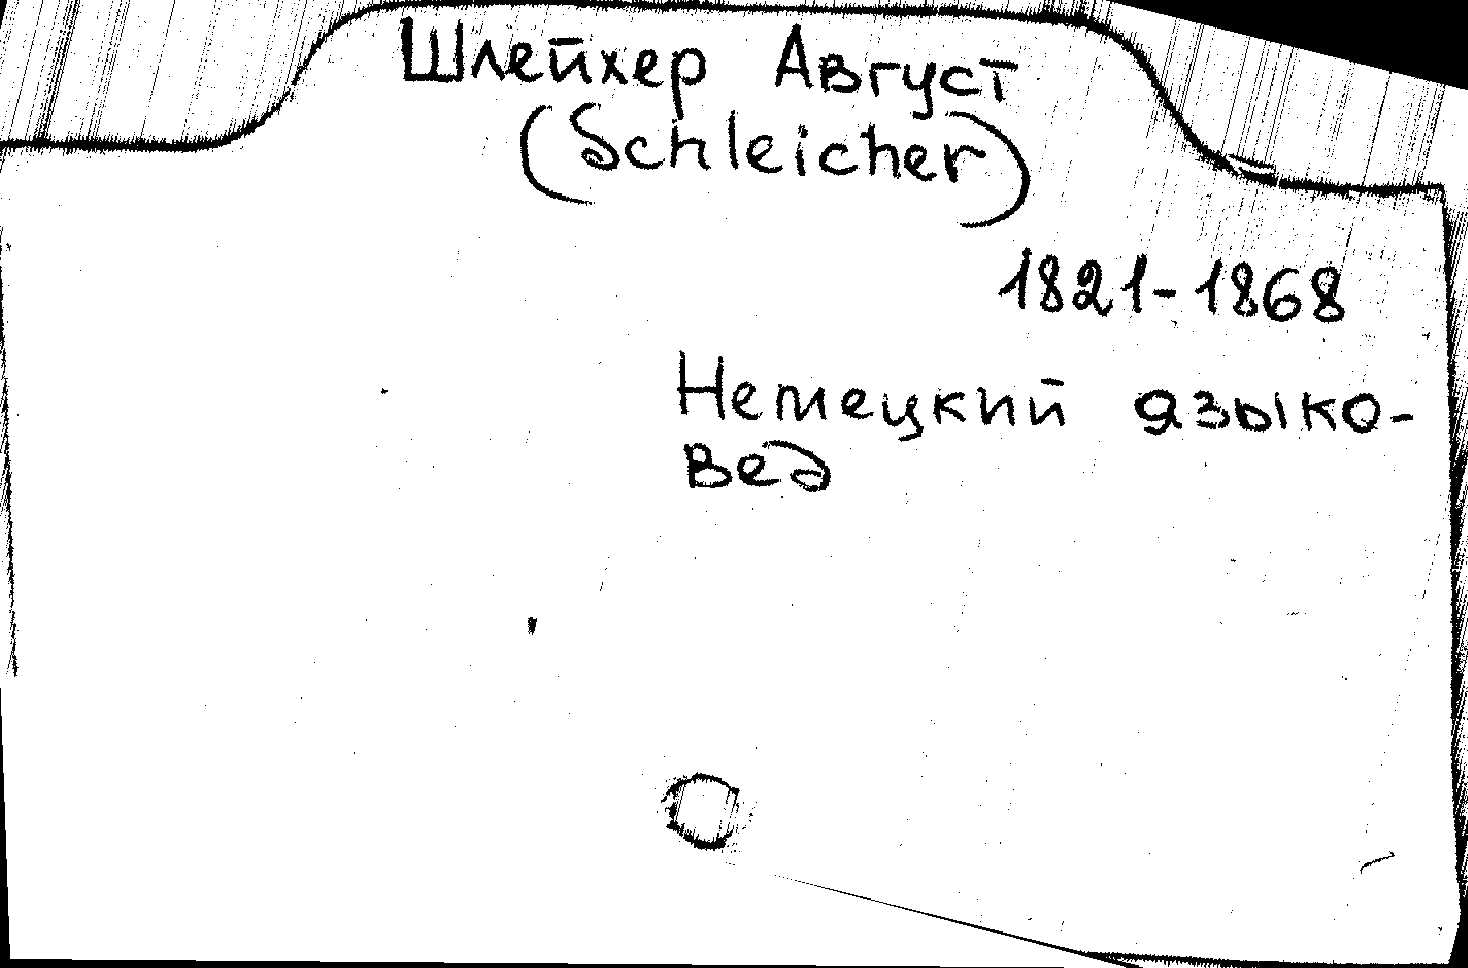 Шлейхер Август
(Schleicher)
1821-1868
Немецкий языко-
вед